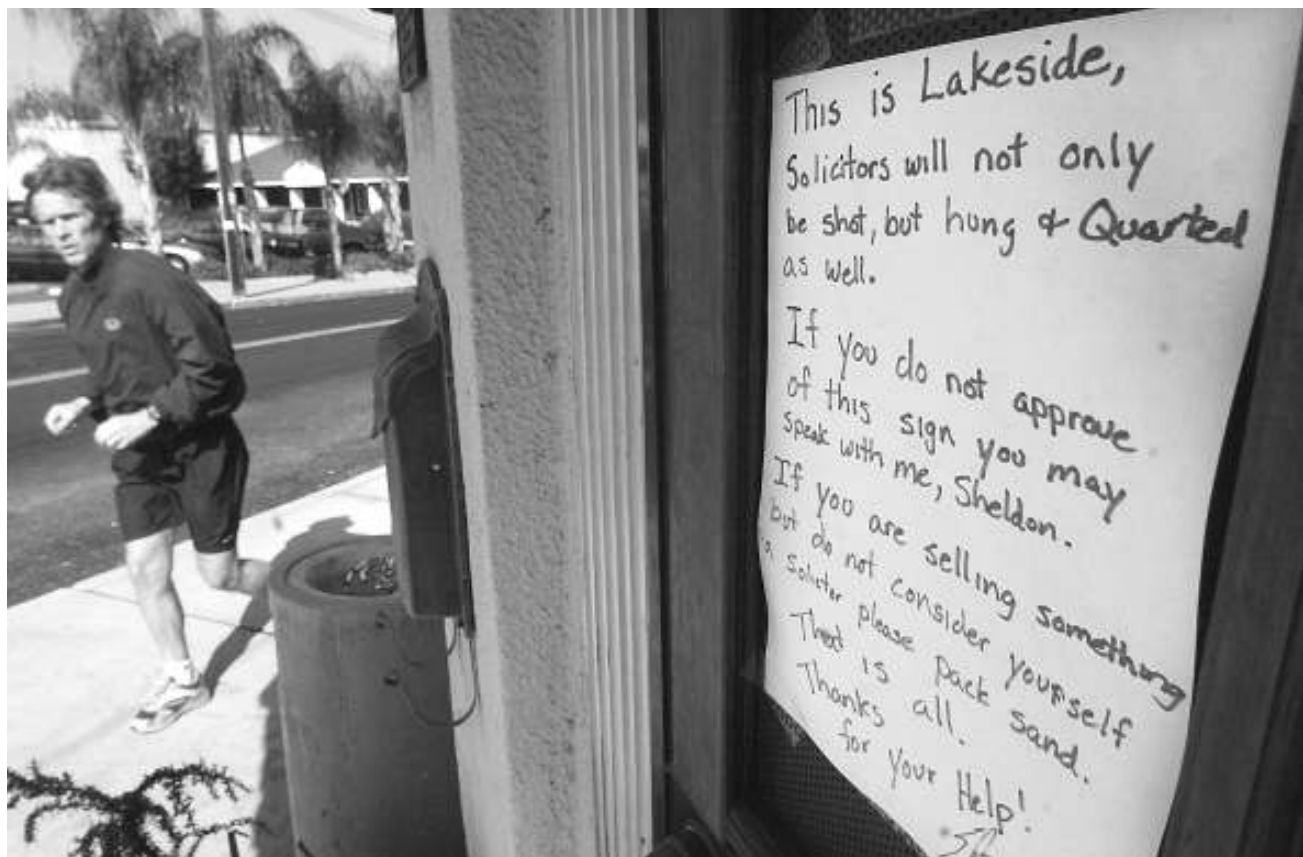 This is Lakeside,
Solicitors will not only
be shot, but hung & Quarted
as well.
If you do not approve
of this sign you may
speak with me, Sheldon.
If you are selling something
but do not consider yourself
a solicitor please pack sand.
That is all.
Thanks
for your Help!